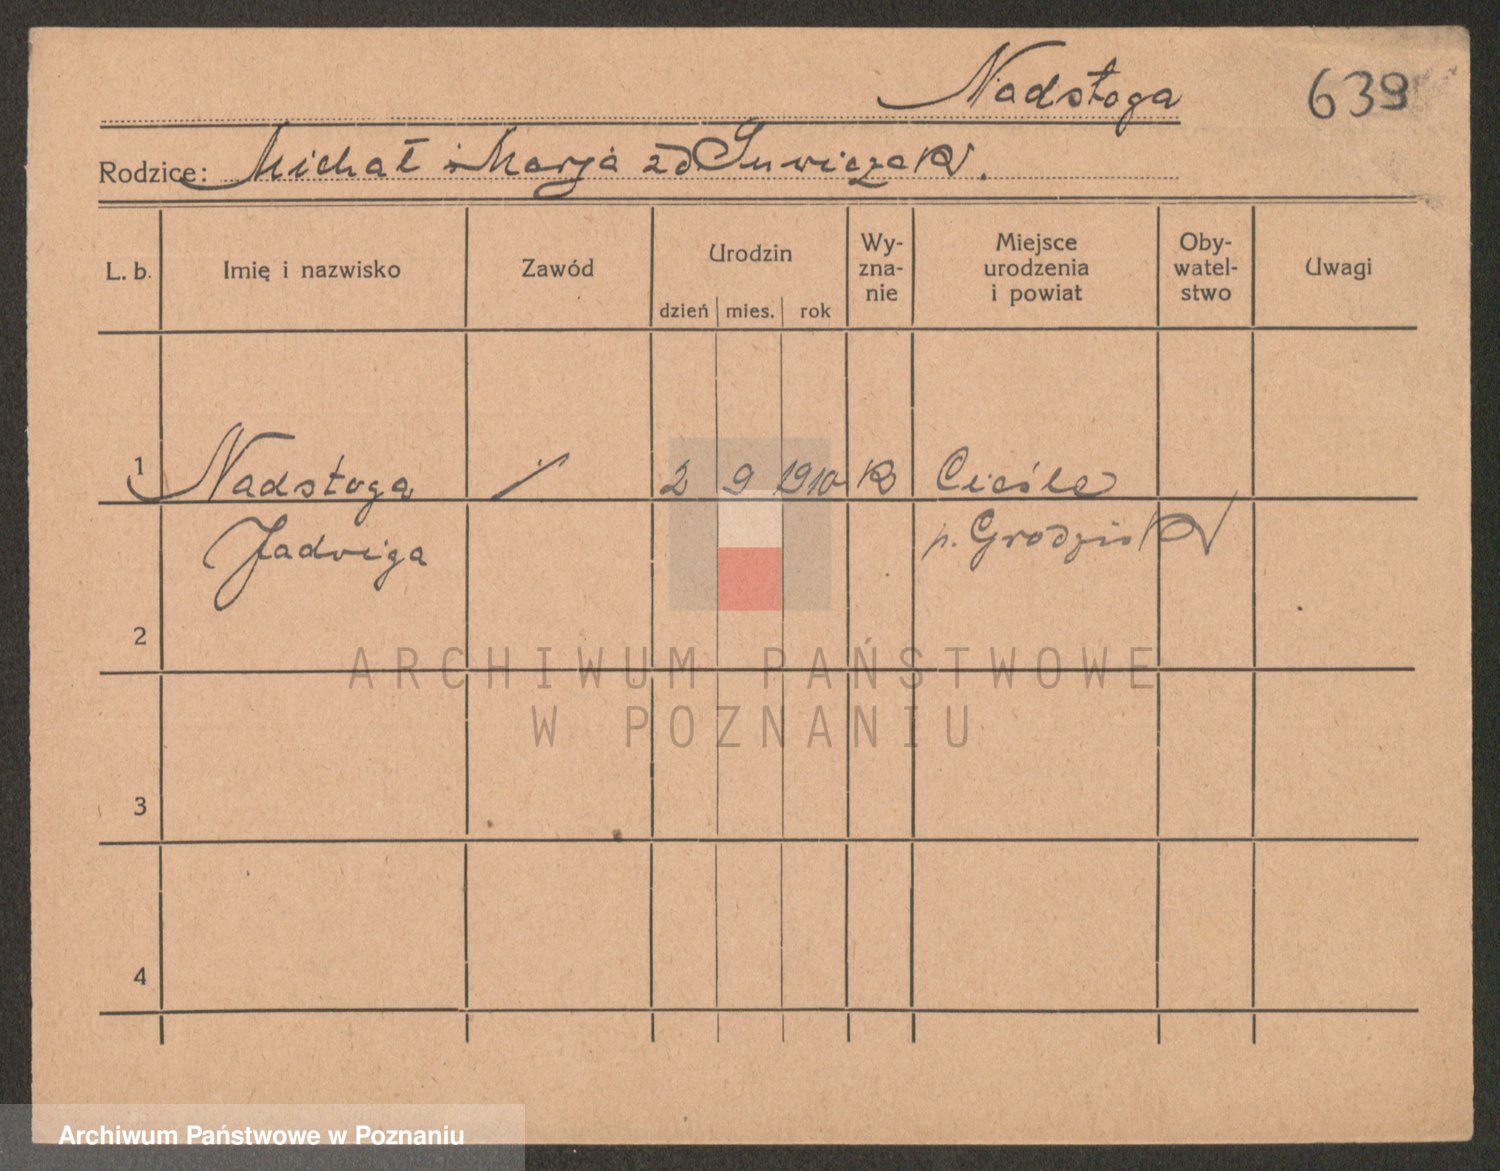 Nadstoga 639
Rodzice: Michał i Marja zd
L. b. Imię i nazwisko Zawód Urodzin dzień mies. rok Wy-zna-nie Miejsce urodzenia i powiat Oby-watel-stwo Uwagi
1 Nadstoga / 2 9 1910 R Cieśle
Jadwiga p. Grodzisk
2
ARCHIWUM PAŃSTWOWE
W POZNANIU
3
4
Archiwum Państwowe w Poznaniu